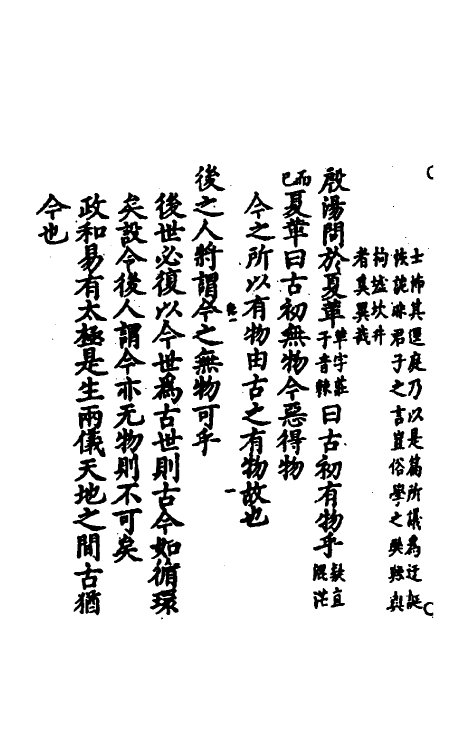 士怖其迂庭乃以是篇所議為迂誕
怯疏昧君子之言豈俗學之與歟真
拘墟坎井
者莫異哉
殷湯問於夏革革字莊子音棘曰古初有物乎疑宜混茫
而已夏革曰古初無物今惡得物
今之所以有物由古之有物故也
後之人將謂今之無物可乎
後世必復以今世為古世則古今如循環
矣設令後人謂今亦无物則不可矣
政和易有太極是生兩儀天地之間古猶
今也